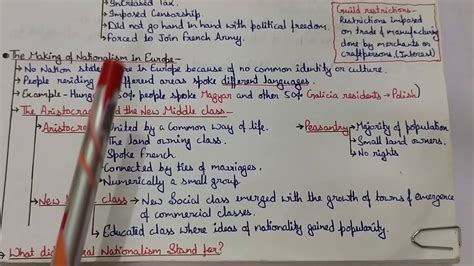 → Increased Tax.
→ Imposed Censorship.
→ Did not go hand in hand with political freedom.
→ Forced to Join French Army.
Guild restrictions-
Restrictions imposed
on trade & manufacturing
done by merchants or
craftpersons. (Internal)
• The Making of Nationalism in Europe-
→ No Nation state in Europe because of no common identity or culture.
→ People residing in different areas spoke different languages.
→ Example- 50% people spoke Magyar and other 50% Galicia residents → Polish)
→ The Aristocracy and the New Middle class-
→ Aristocracy → United by a Common way of life.
→ The land owning class.
→ Spoke French
→ Connected by ties of marriages.
→ Numerically a small group
→ Peasantry → Majority of population
→ Small land owners.
→ No rights
→ New class → New Social class emerged with the growth of towns & emergence
of commercial classes.
→ Educated class where ideas of nationality gained popularity.
→ What did Nationalism Stand for?